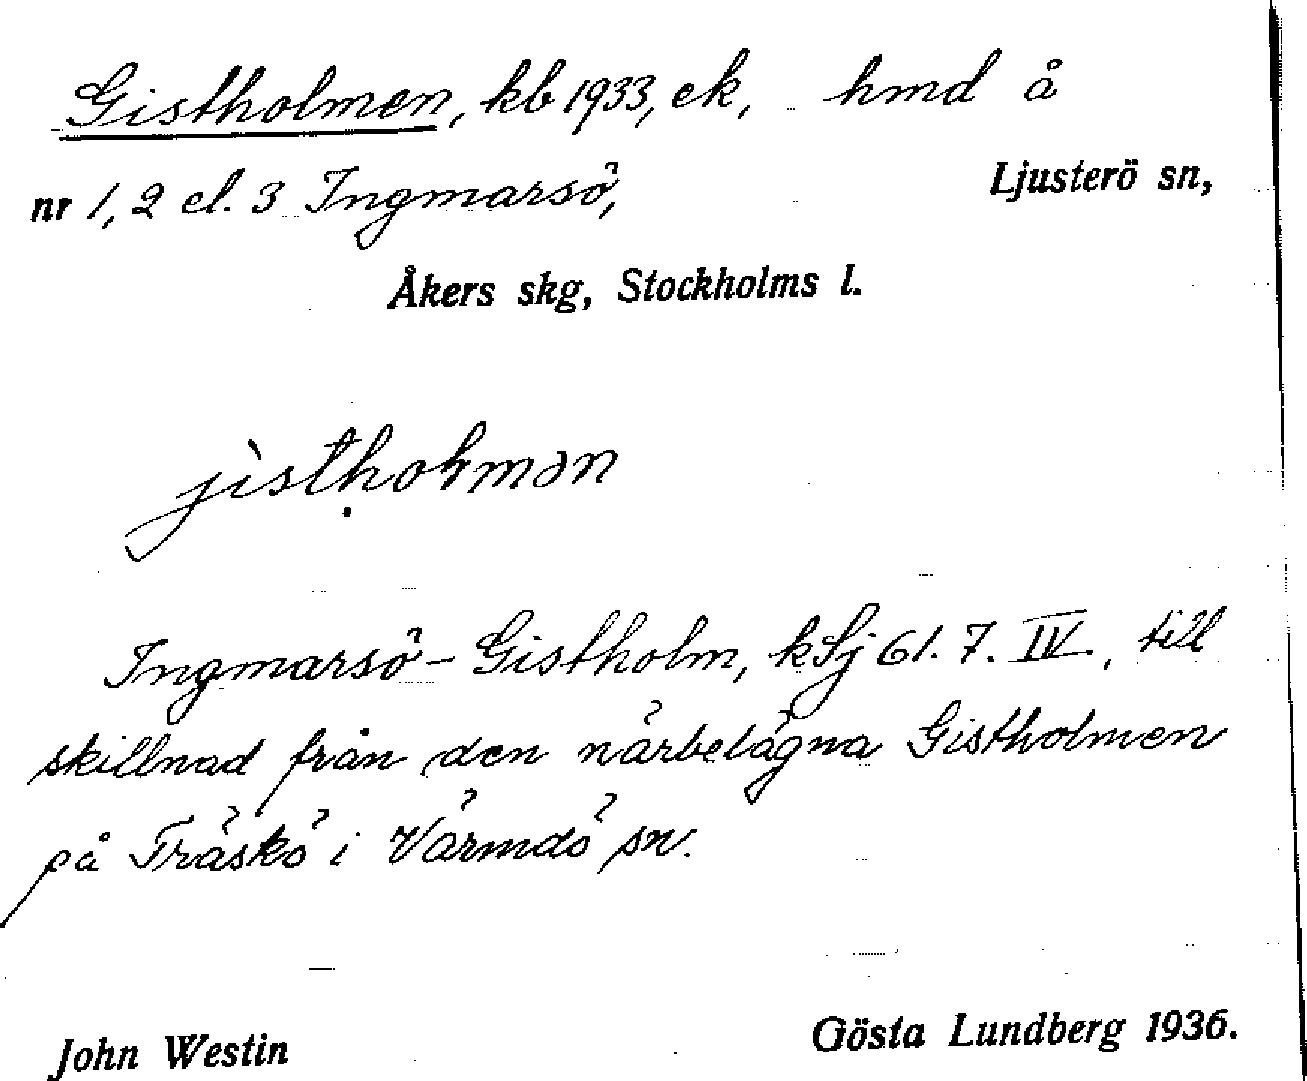 Gistholmen, kb 1933, ek, hmd å
nr 1, 2 el. 3 Ingmarsö, Ljusterö sn,
Åkers skg, Stockholms l.
jìstḥoɫmən
Ingmarsö-Gistholm, kSj 61. 7. IV., till
skillnad från den närbelägna Gistholmen
på Träskö i Värmdö sn.
John Westin Gösta Lundberg 1936.